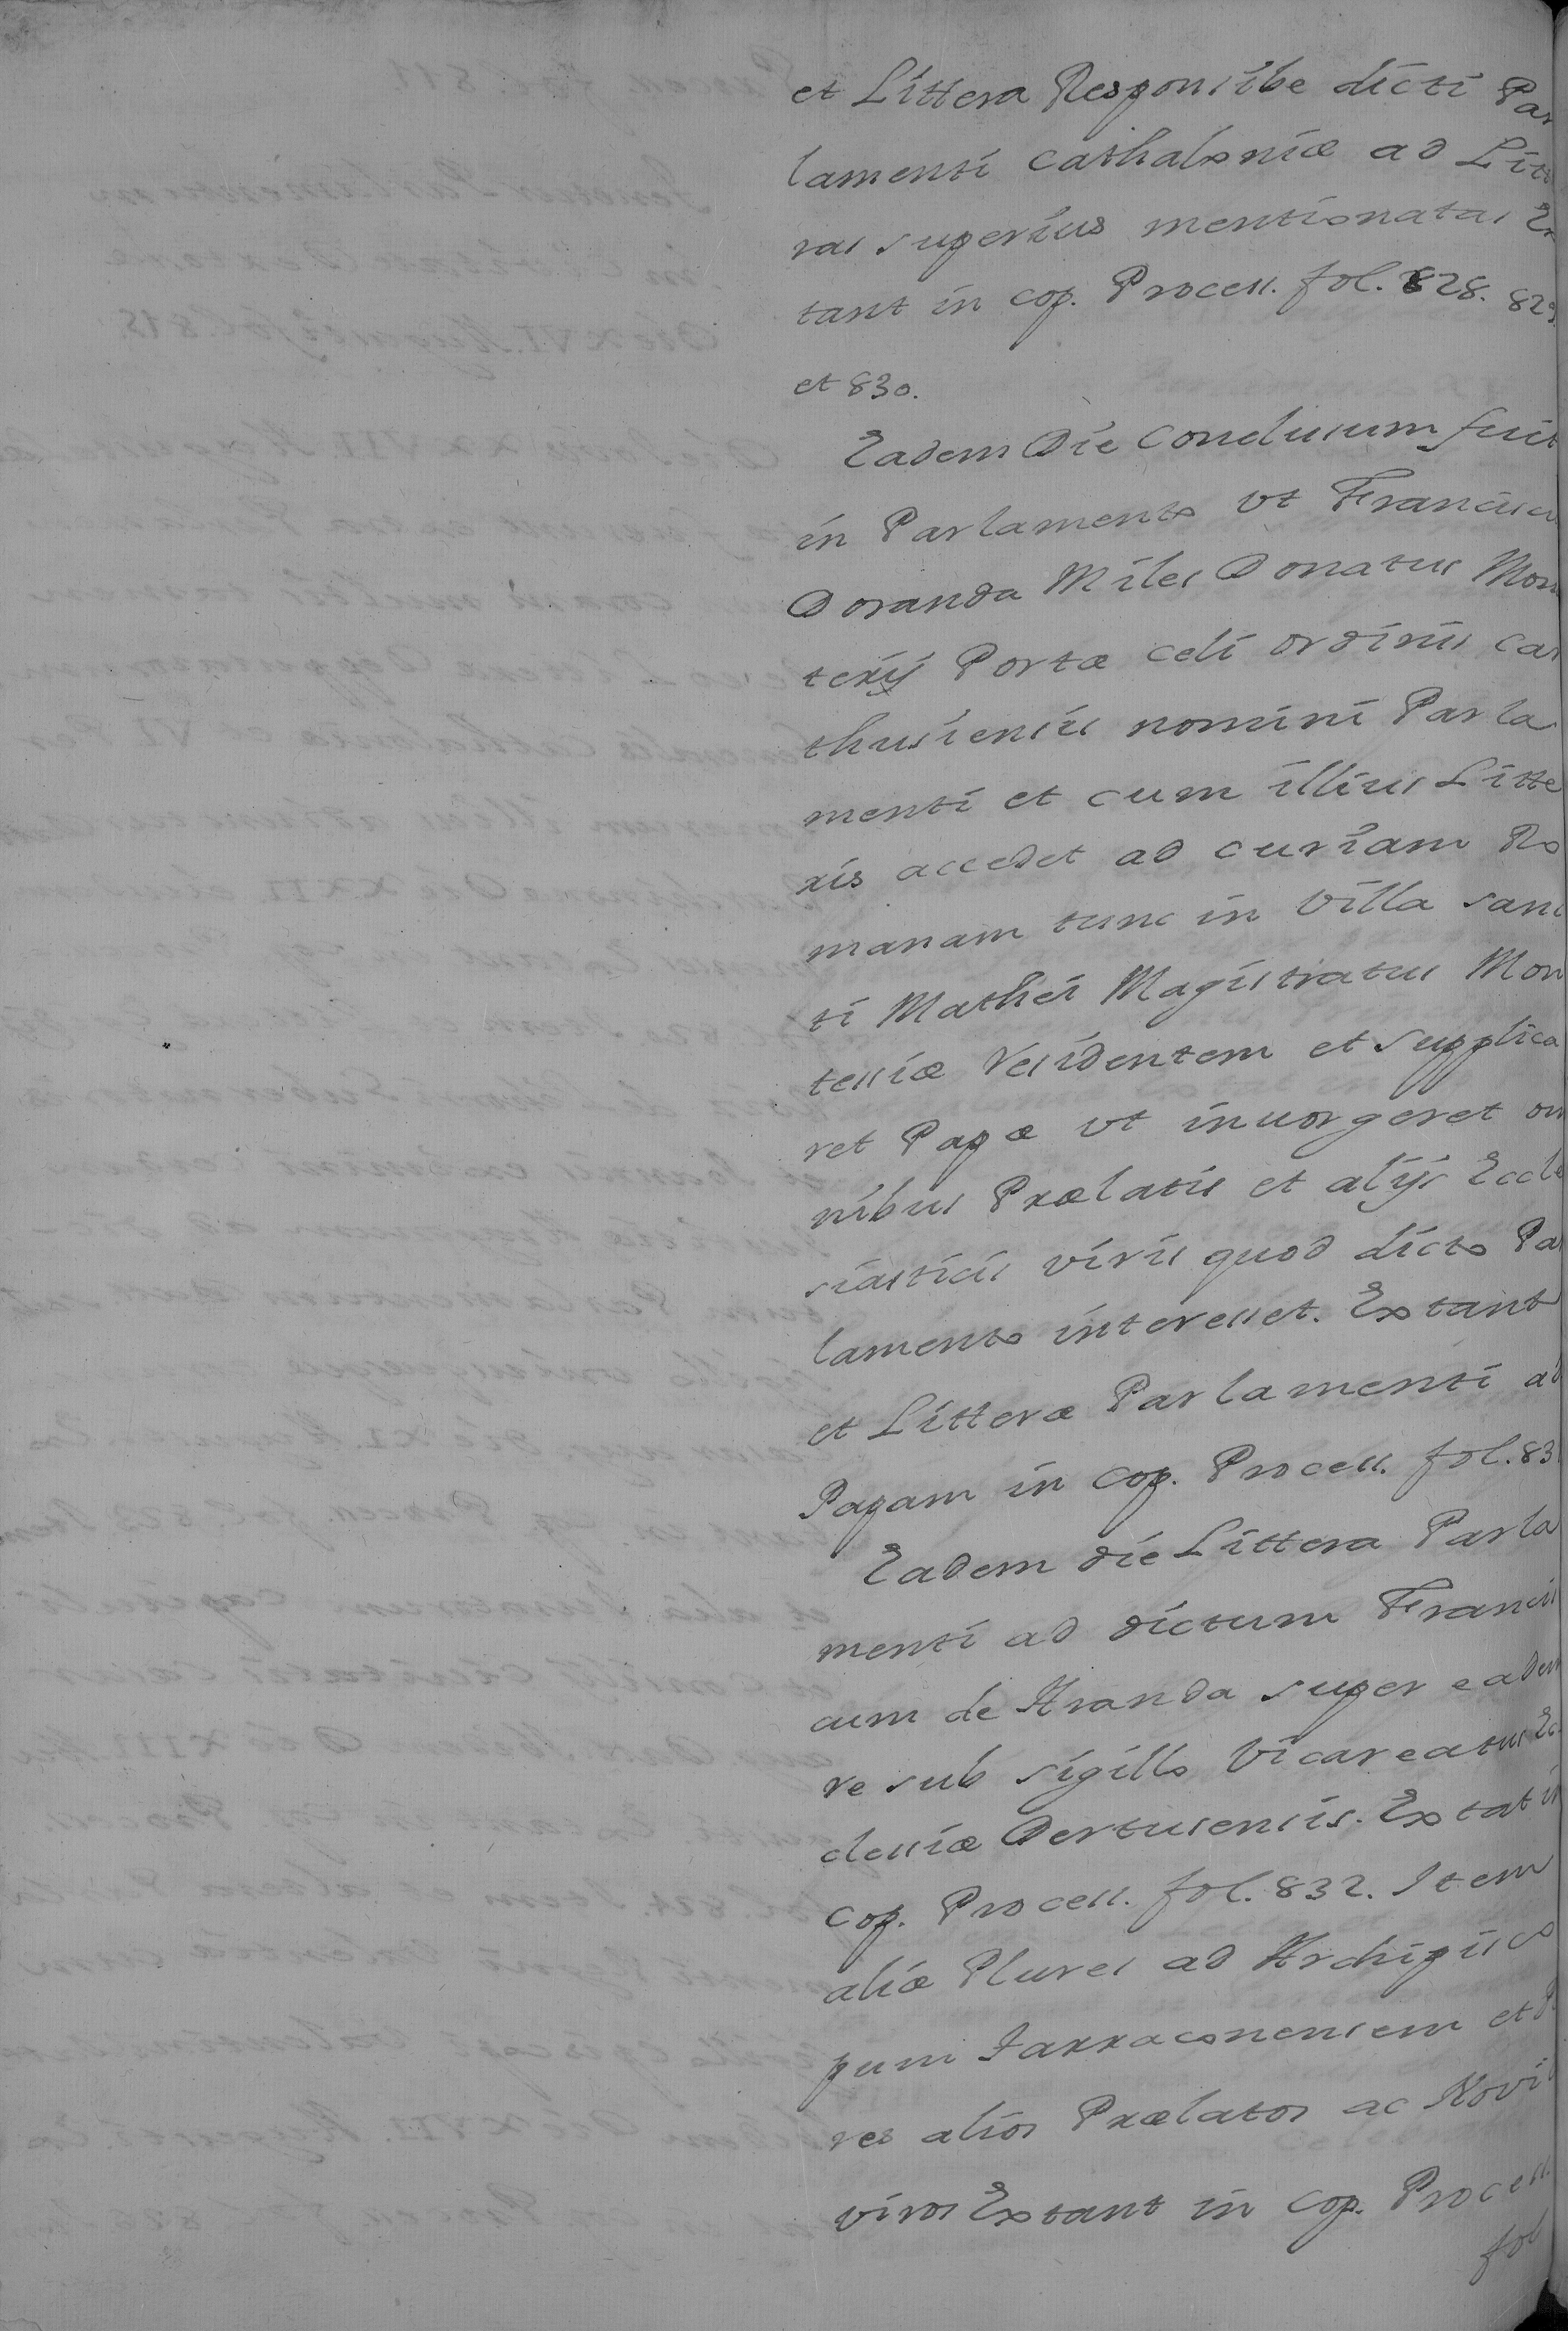 et Littera Responsibe dicti Par
lamenti Cathaloniæ ad Litte
ras superius mentionatas Ex
tant in cop. Process. fol. 828. 829.
et 830.
Eadem Die Conclusum fuit
in Parlamento vt Francisc
Doranda Miles Donatus Mon
terij Portæ celi ordinis Car
thusiensis nomini Parla
menti et cum illius Litte
ris accedet ad curiam Ro
manam tunc in Villa sanc
ti Mathei Magistratus Mon
tessiæ Residentem et supplica
ret Papæ vt inuorgeret om
nibus Prælatis et alijs Eccle
siasticis viris quod dicto Par
lamento interesset. Extant
et Litteræ Parlamenti ad
Papam in cop. Process. fol. 831
Eadem die Littera Parla
menti ad dictum Francis
cum de Aranda super eadem
re sub sigillo Vicareatus Ec
clessiæ Dertusensis. Extat in
cop. Process. fol. 832. Item
aliæ Plures ad Archipisco
pum Tarraconensem et
res alios Prælatos ac Novi
viros Extant in cop. Process.
fol